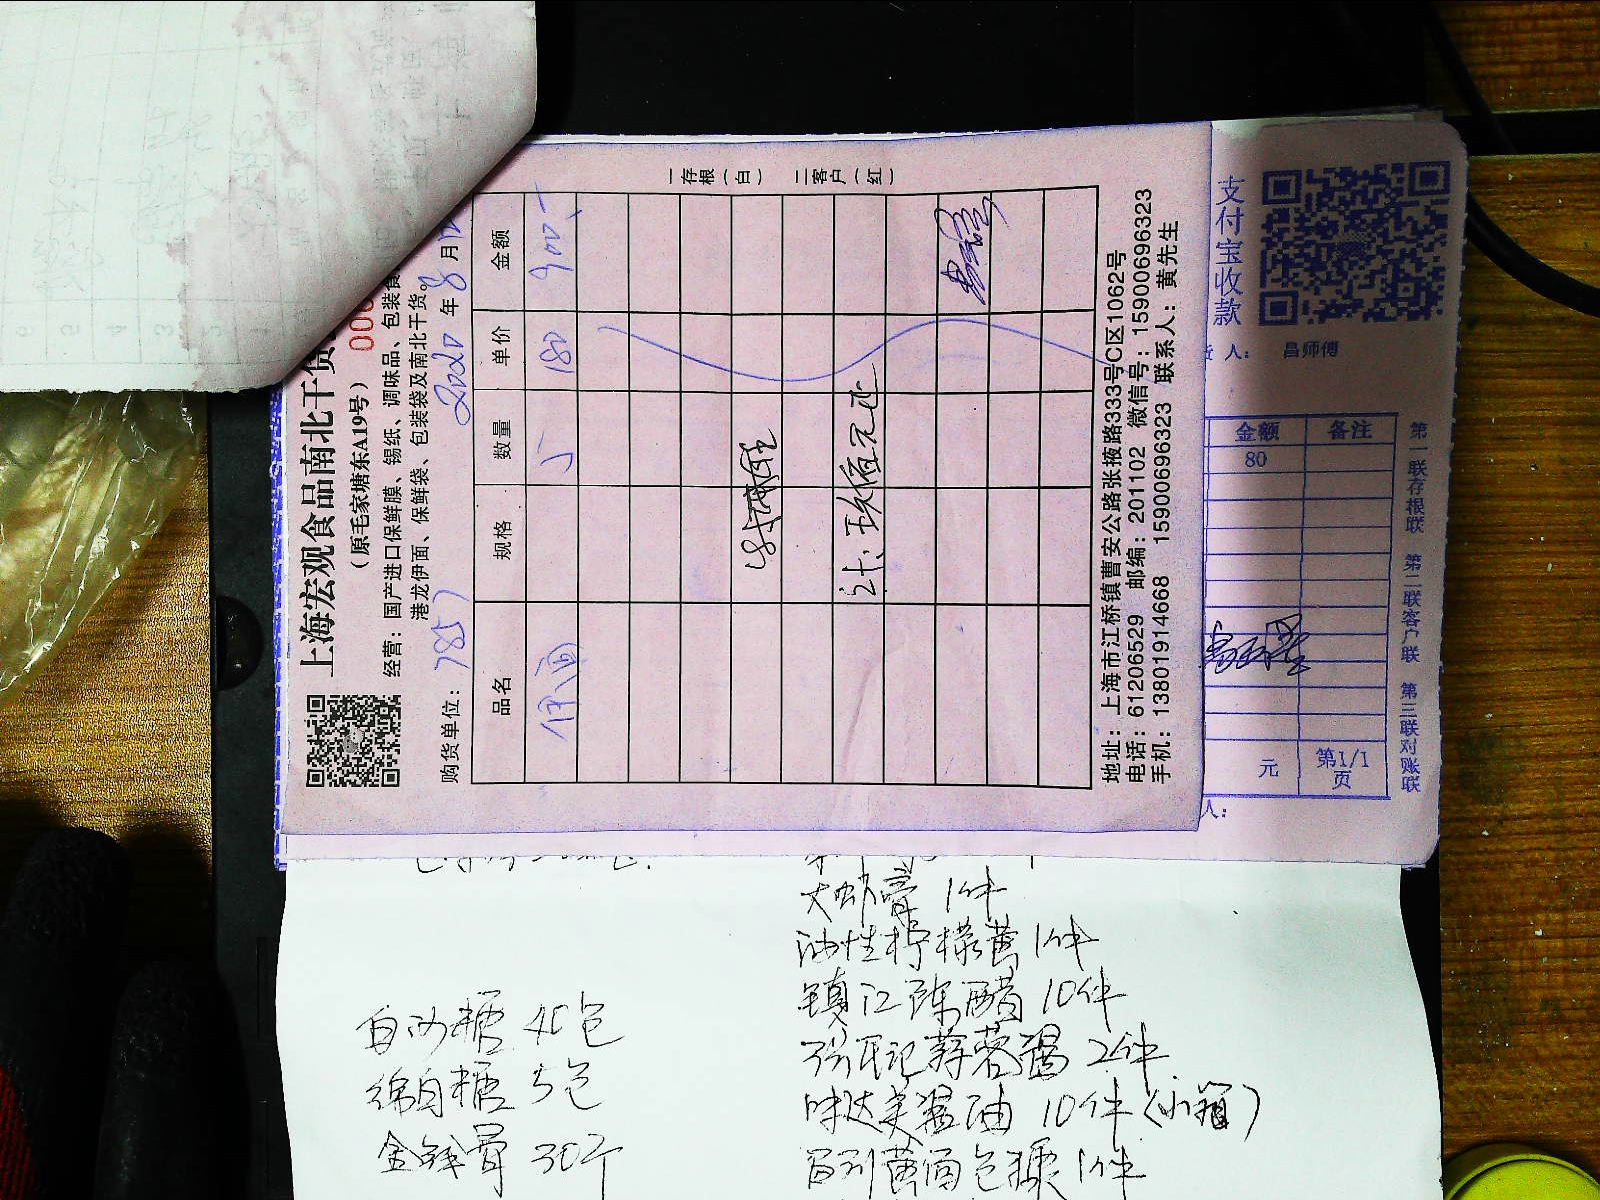 上海宏观食品南北干货
000
(原毛家塘东A19号)
经营：国产进口保鲜膜、锡纸、调味品、包装食
港龙伊面、保鲜袋、包装袋及南北干货。
购货单位：7857 2020年8月
品名 规格 数量 单价 金额
伊面 5 180 900
计：玖佰元正
一存根(白) 二客户(红)
地址：上海市江桥镇曹安公路张掖路333号C区1062号
电话：61206529 邮编：201102 微信号：15900696323
手机：13801914668 15900696323 联系人：黄先生
支付宝收款
人： 昌师傅
金额 备注
80
元 第1/1页
人：
第一联存根联 第二联客户联 第三联对账联
大虾膏 1件
油性柠檬黄 1件
镇江陈醋 10件
蒜蓉酱 2件
味达美酱油 10件(小箱)
面包糠 1件
白砂糖 40包
绵白糖 5包
30个
6
5
4
3
2